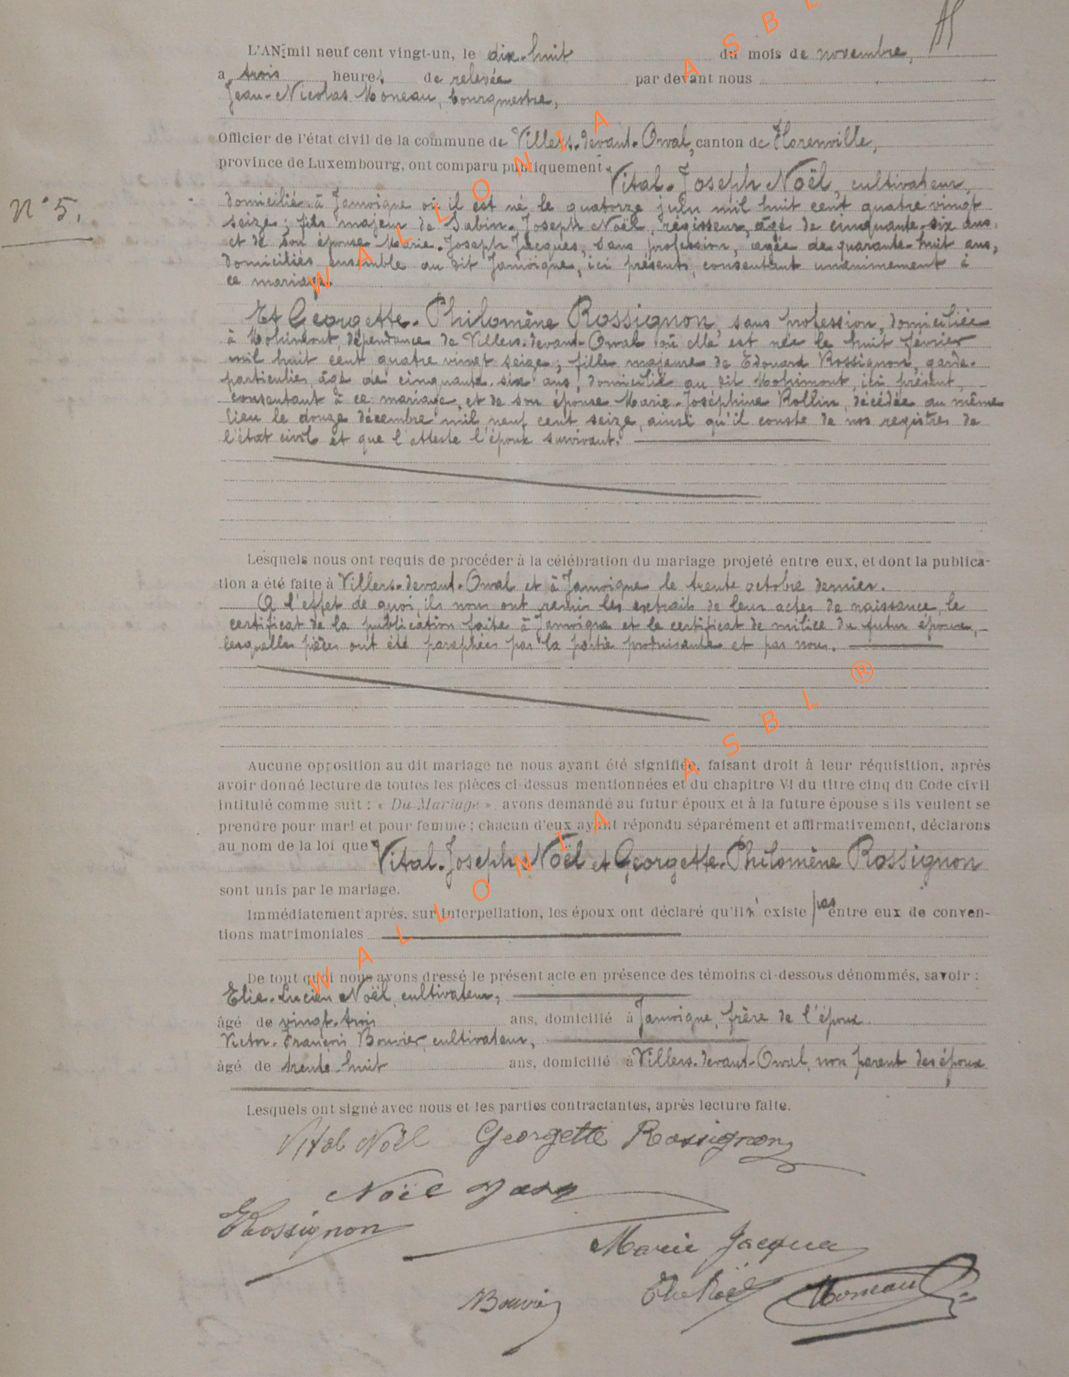 L'AN mil neuf cent vingt-un, le dix-huit du mois de novembre,
a trois heures de relevée par devant nous
Jean-Nicolas Moneau, bourgmestre,
Officier de l'état civil de la commune de Villers-devant-Orval, canton de Florenville,
province de Luxembourg, ont comparu publiquement Vital-Joseph Noël, cultivateur,
N° 5.
domicilié à Jamoigne où il est né le quatorze mil huit cent quatre vingt
seize; fils majeur de Sabin-Joseph Noël, régisseur, âgé de cinquante-six ans,
et de son épouse Marie-Joseph Jacques, sans profession, agée de quarante-huit ans,
domiciliés ensemble au dit Jamoigne, ici présents, consentant unanimement à
ce mariage.
Et Georgette-Philomène Rossignon, sans profession, domiciliée
à Mohimont, dépendance de Villers-devant-Orval où elle est née le huit février
mil huit cent quatre vingt seize; fille majeure de Edouard Rossignon, garde-
particulier, âgé de cinquante-six ans, domicilié au dit Mohimont, ici présent,
consentant à ce mariage, et de son épouse Marie-Joséphine Rollin, décédée au même
lieu le douze décembre mil neuf cent seize, ainsi qu'il conste de nos registres de
l'état civil et que l'atteste l'époux survivant.
Lesquels nous ont requis de procéder à la célébration du mariage projeté entre eux, et dont la publica-
tion a été faite à Villers-devant-Orval et à Jamoigne le trente octobre dernier.
A l'effet de quoi, ils nous ont remis les extraits de leurs actes de naissance, le
certificat de la publication faite à Jamoigne et le certificat de milice du futur époux,
lesquelles pièces ont été paraphées par la partie produisante et par nous.
Aucune opposition au dit mariage ne nous ayant été signifiée, faisant droit à leur réquisition, après
avoir donné lecture de toutes les pièces ci-dessus mentionnées et du chapitre VI du titre cinq du Code civil
intitulé comme suit : « Du Mariage », avons demandé au futur époux et à la future épouse s'ils veulent se
prendre pour mari et pour femme ; chacun d'eux ayant répondu séparément et affirmativement, déclarons
au nom de la loi que Vital-Joseph Noël et Georgette-Philomène Rossignon
sont unis par le mariage.
Immédiatement après, sur interpellation, les époux ont déclaré qu'il n'existe pas entre eux de conven-
tions matrimoniales
De tout quoi nous avons dressé le présent acte en présence des témoins ci-dessous dénommés, savoir :
Elie-Lucien Noël, cultivateur,
âgé de vingt-trois ans, domicilié à Jamoigne, frère de l'époux
Victor-François Bouvier, cultivateur,
âgé de trente-huit ans, domicilié à Villers-devant-Orval, non parent des époux
Lesquels ont signé avec nous et les parties contractantes, après lecture faite.
Vital Noël Georgette Rossignon
Noël
E Rossignon
Marie Jacques
Bouvier Elie Noël Moneau
WALLONIA ASBL
WALLONIA ASBL ®